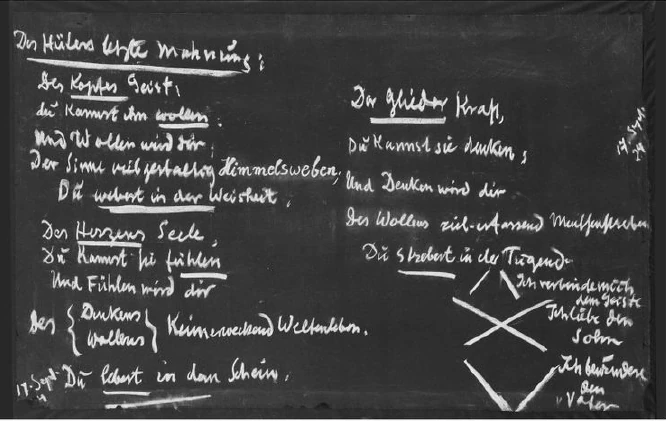 Des Hüters letzte Mahnung:
Des Kopfes Geist,
du kannst ihn wollen,
Und Wollen wird dir,
Der Sinne vielgestaltig Himmelsweben,
Du webest in der Weisheit.
Des Herzens Seele,
Du kannst sie fühlen
Und Fühlen wird dir
Des { Denkens
Wollens } Keimerweckend Weltenleben.
Du lebest in dem Schein.
17. Sept.
Der Glieder Kraft,
Du kannst sie denken,
Und Denken wird dir
Des Wollens ziel-erfassend Menschenstreben
Du strebest in der Tugend
Ich verbinde mich
dem Geiste
Ich
den
Sohn
Ich bewundere
den
Vater
17. Sept.
24